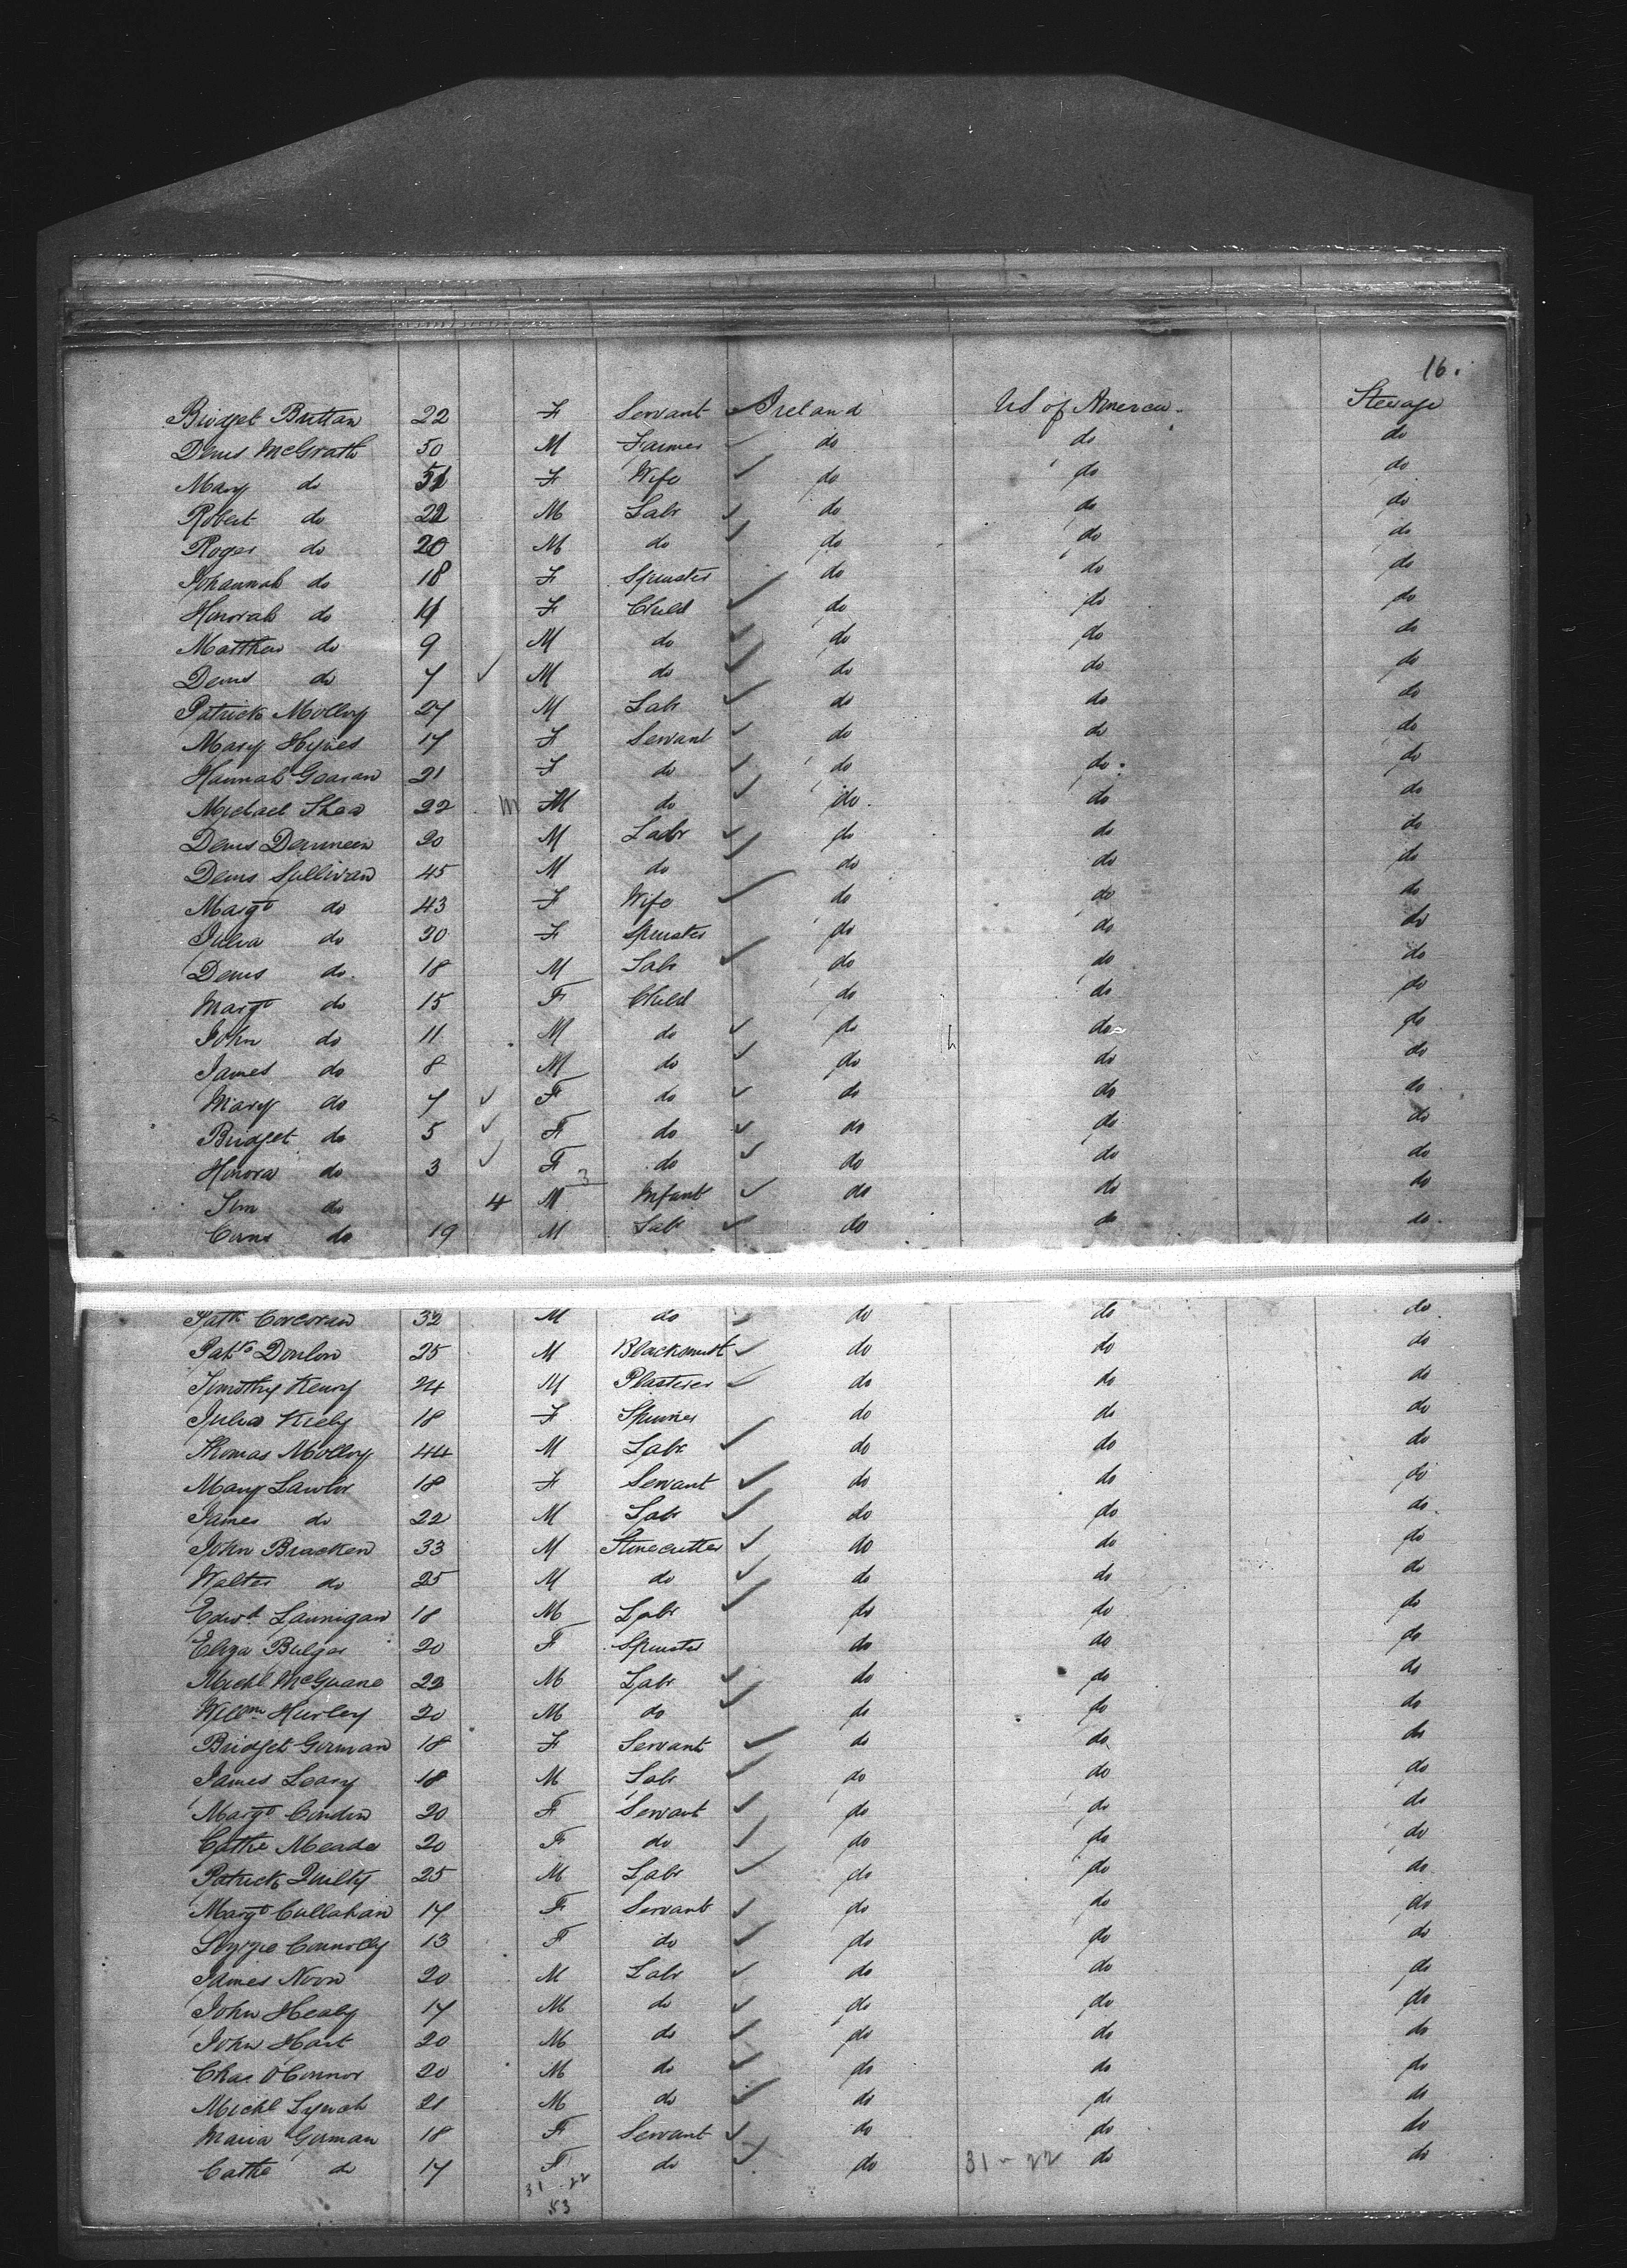 16.
Bridget Brittan 22 F Servant Ireland US of America Steerage
Denis McGrath 50 M Farmer do do do
Mary do 51 F Wife do do do
Robert do 22 M Labr do do do
Roger do 20 M do do do do
Johannah do 18 F Spinster do do do
Honorah do 11 F Child do do do
Matthew do 9 M do do do do
Denis do 7 M do do do do
Patrick Molloy 27 M Labr do do do
Mary Hynes 17 F Servant do do do
Hannah Gearan 21 F do do do do
Michael Shea 22 m M do do do do
Denis Denneen 20 M Labr do do do
Denis Sullivan 45 M do do do do
Margt do 43 F Wife do do do
Julia do 20 F Spinster do do do
Denis do 18 M Labr do do do
Margt do 15 F Child do do do
John do 11 M do do do do
James do 8 M do do do do
Mary do 7 F do do do do
Bridget do 5 F do do do do
Honora do 3 F 3 do do do do
Tim do 4 M Infant do do do
do 19 M Labr do do do
Patk Corcoran 32 M do do do do
Patk Donlon 25 M Blacksmith do do do
Timothy Keny 24 M Plasterer do do do
Julia Kiely 18 F do do do
Thomas Molloy 44 M Labr do do do
Mary Lawlor 18 F Servant do do do
James do 22 M Labr do do do
John Bracken 33 M Stonecutter do do do
Walter do 25 M do do do do
Edwd Lannigan 18 M Labr do do do
Eliza Bulger 20 F Spinster do do do
Michl McGuane 22 M Labr do do do
Willm Hurley 20 M do do do do
Bridget Gorman 18 F Servant do do do
James Leary 18 M Labr do do do
Margt Condon 20 F Servant do do do
Cathe Meade 20 F do do do do
Patrick Quilty 25 M Labr do do do
Margt Cullahan 17 F Servant do do do
Lizzie Connolly 13 F do do do do
James Noon 20 M Labr do do do
John Healy 17 M do do do do
John Hart 20 M do do do do
Chas O'Connor 20 M do do do do
Michl Lynch 21 M do do do do
Maria Gorman 18 F Servant do do do
Cathe do 17 F do do 31 - 22 do do
31 - 22
53